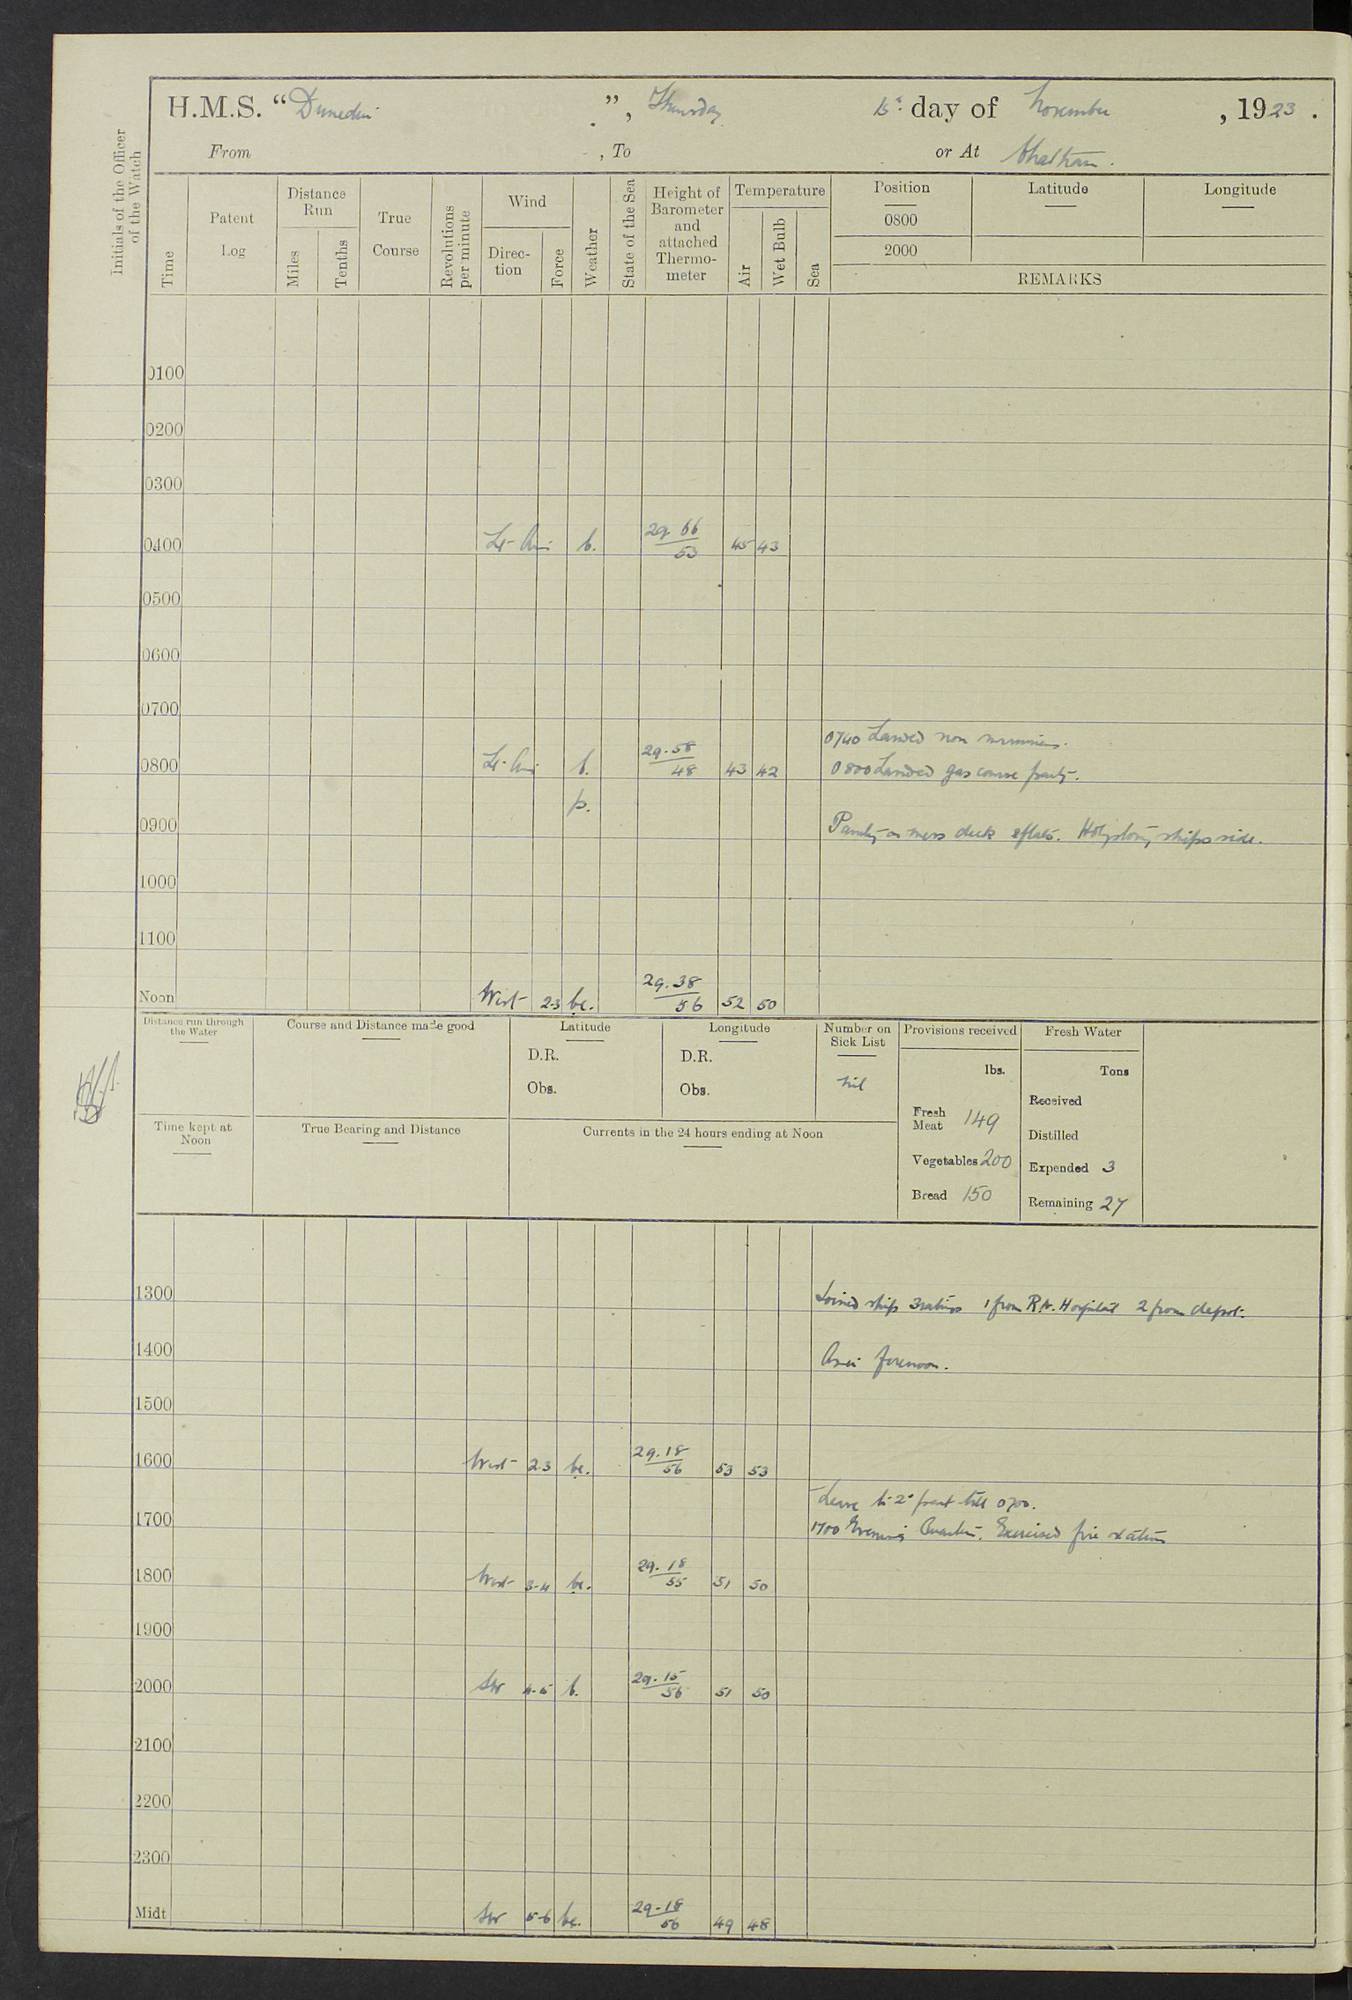 H.M.S. “Dunedin”, Thursday 15th day of November, 1923.
From , To or At Chatham.
Initials of the Officer of the Watch
Time
Patent Log
Distance Run
Miles
Tenths
True Course
Revolutions per minute
Wind
Direc-tion
Force
Weather
State of the Sea
Height of Barometer and attached Thermo-meter
Temperature
Air
Wet Bulb
Sea
Position Latitude Longitude
0800
2000
REMARKS
0100
0200
0300
0400 Lt Airs b. 29.66 53 45 43
0500
0600
0700
0740 Landed non swimmers.
0800 Lt Airs b. 29.58 48 43 42 0800 Landed gas course party.
p.
0900 Painting on mess deck & flats. Holystoning ships side.
1000
1100
Noon West 2-3 bc. 29.38 56 52 50
Distance run through the Water
Course and Distance made good
Latitude
D.R.
Obs.
Longitude
D.R.
Obs.
Number on Sick List
Nil
Provisions received
lbs.
Fresh Meat 149
Vegetables 200
Bread 150
Fresh Water
Tons
Received
Distilled
Expended 3
Remaining 27
Time kept at Noon
True Bearing and Distance
Currents in the 24 hours ending at Noon
1300 Joined ship 3 ratings 1 from R.N. Hospital 2 from depot.
1400 As in forenoon.
1500
1600 West 2-3 bc. 29.18 56 53 53
Leave to 2nd part till 0700.
1700 1700 Evening Quarters. Exercised fire stations
1800 West 3-4 bc. 29.18 55 51 50
1900
2000 SW 4-5 b. 29.15 56 51 50
2100
2200
2300
Midt SW 5-6 bc. 29.18 56 49 48